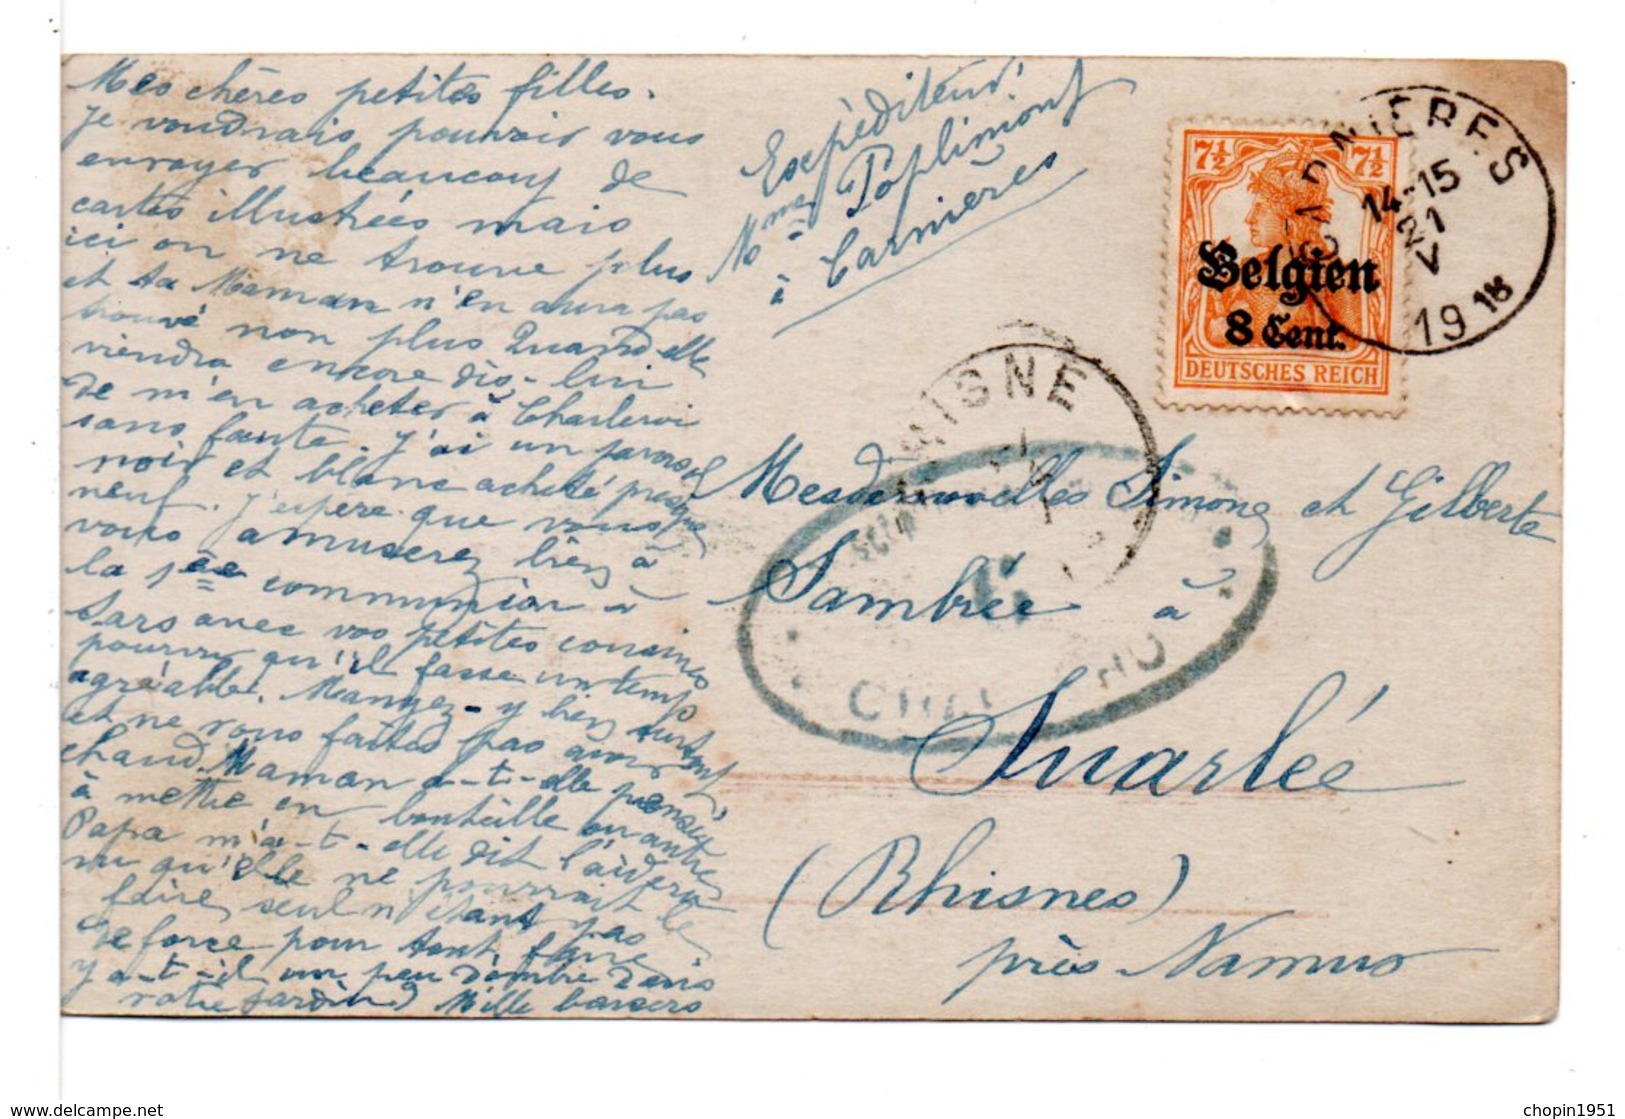 Mes chères petites filles.
Je voudrais pouvoir vous
envoyer beaucoup de
cartes illustrées mais
ici on ne trouve plus
et ta Maman n'en aura pas
trouvé non plus Quand elle
viendra encore dis-lui
de m'en acheter à Charleroi
sans faute. J'ai un parasol
noir et blanc acheté presque
neuf. J'espère que vous
vous amuserez bien à
la 1ère communion à
Sars avec vos petites cousines
pourvu qu'il fasse un temps
agréable. Mangez-y bien surtout
et ne vous faites pas avoir
chaud. Maman a-t-elle pensé
à mettre en bouteille ou autre
Papa m'a-t-elle dit l'aidera
vu qu'elle ne pourrait le
faire seul n'étant pas
de force pour tout faire
y a-t-il un peu d'ombre dans
votre jardin? Mille baisers
Expéditeur:
Mme Poplimont
à Carnières
7½ 7½
Belgien
8 Cent.
DEUTSCHES REICH
CARNIÈRES
14-15
21
V
1918
RHISNE
Mesdemoiselles Simone et Gilberte
Sambrée à
Suarlée
(Rhisnes)
près Namur
delcampe.net
chopin1951